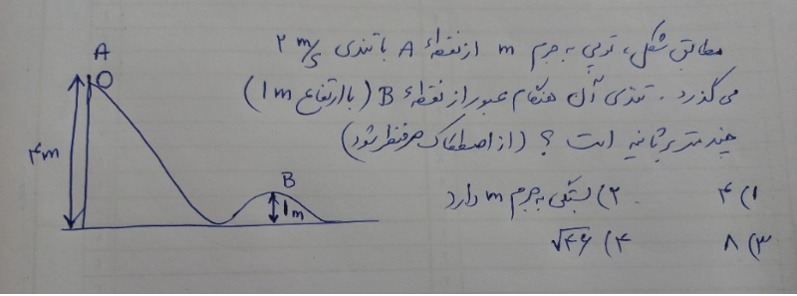 مطابق شکل، توپی به جرم m از نقطهٔ A با تندی ۲ m/s
می گذرد. تندی آن هنگام عبور از نقطهٔ B (با ارتفاع 1m)
چند متر بر ثانیه است ؟ (از اصطکاک صرفنظر شود)
۱) ۴ ۲) بستگی به جرم m دارد
۳) ۸ ۴) √۴۶
A
۴m
B
1m